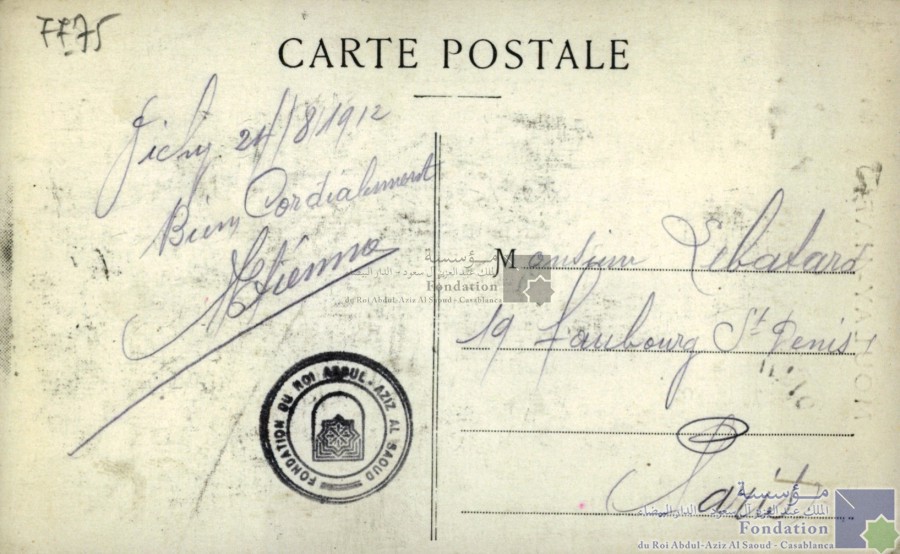 FF75
CARTE POSTALE
Vichy 24/8/1912
Bien Cordialement
AEtienne
Monsieur Lebatard
19 Faubourg St Denis
Paris
FONDATION DU ROI ABDUL-AZIZ AL SAOUD
مؤسسة
الملك عبد العزيز آل سعود - الدار البيضاء
Fondation
du Roi Abdul-Aziz Al Saoud - Casablanca
مؤسسة
الملك عبد العزيز آل سعود - الدار البيضاء
Fondation
du Roi Abdul-Aziz Al Saoud - Casablanca